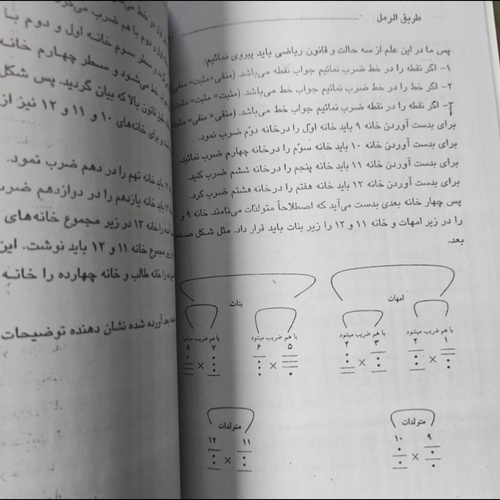 طریق الرمل
پس ما در این علم از سه حالت و قانون ریاضی باید پیروی نمائیم:
۱- اگر نقطه را در خط ضرب نمائیم جواب نقطه می‌باشد. (منفی× مثبت= منفی)
۲- اگر خط را در خط ضرب نمائیم جواب خط می‌باشد. (مثبت× مثبت=
۳- اگر نقطه را در نقطه ضرب نمائیم جواب خط می‌باشد. (منفی× منفی=
برای بدست آوردن خانه ۹ باید خانه اوّل را در خانه دوّم ضرب نمود.
برای بدست آوردن خانه ۱۰ باید خانه سوّم را در خانه چهارم ضرب نمائید.
برای بدست آوردن خانه ۱۱ باید خانه پنجم را در خانه ششم ضرب کنید.
برای بدست آوردن خانه ۱۲ باید خانه هفتم را در خانه هشتم ضرب کرد.
پس چهار خانه بعدی بدست می‌آید که اصطلاحاً متولدّات می‌نامند خانه ۹ و
را در زیر امهات و خانه ۱۱ و ۱۲ را زیر بنات باید قرار داد. مثل شکل
بعد.
امهات
بنات
با هم ضریب میشود
با هم ضریب میشود
با هم ضریب میشود
با هم ضریب میشود
۱ ۲ ۳ ۴ ۵ ۶ ۷ ۸
× × × ×
متولدات
متولدات
۹ ۱۰ ۱۱ ۱۲
× ×
اول و دوم با هم ضرب
سطر سوم خانه اول و دوم با
می‌شود و سطر چهارم خانه
قانون بالا که بیان گردید. پس شکل
برای خانه‌های ۱۰ و ۱۱ و ۱۲ نیز از
باید خانه نهم را در دهم ضرب نمود.
باید خانه یازدهم را در دوازدهم ضرب
را خانه ۱۳ در زیر مجموع خانه‌های
زیر مجموع خانه ۱۱ و ۱۲ باید نوشت. این
را خانه طالب و خانه چهارده را خانه
بعد آورده شده نشان دهنده توضیحات